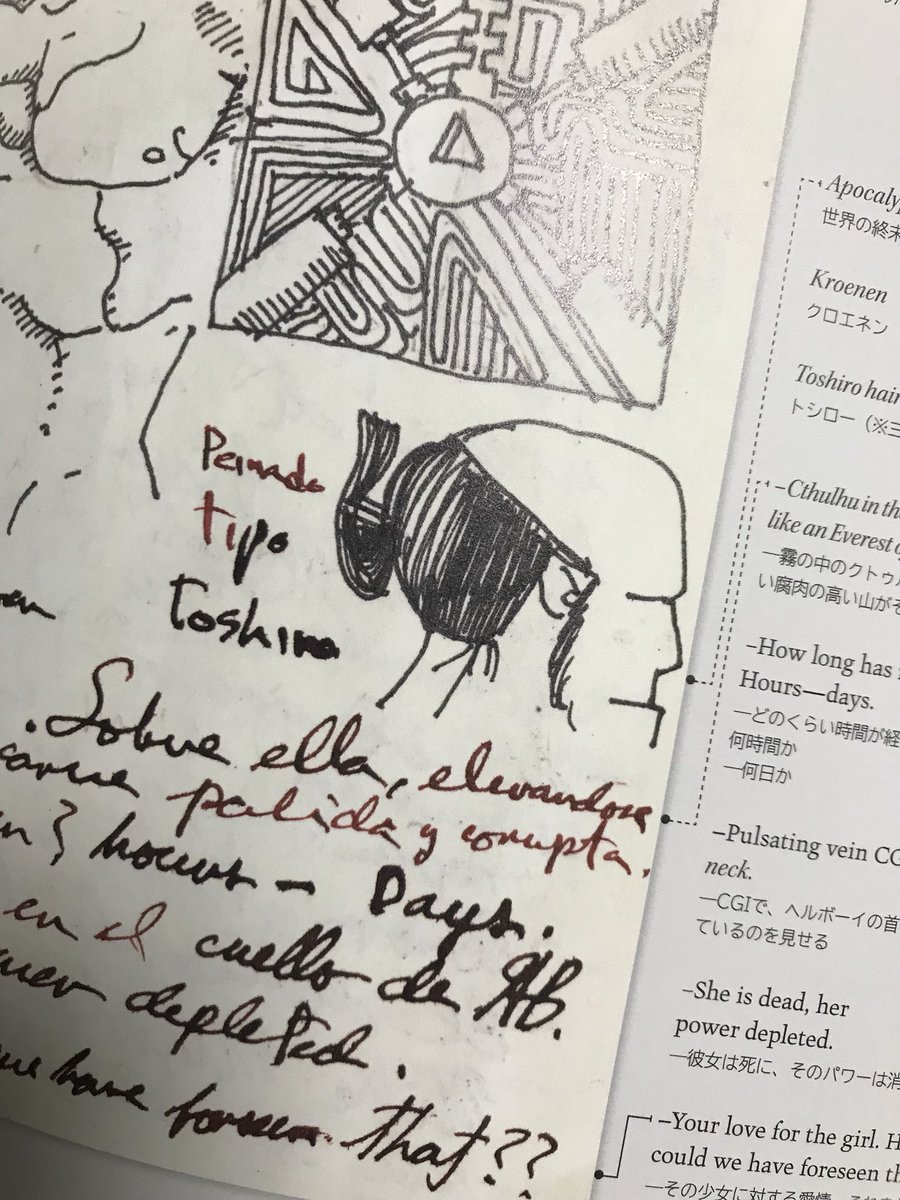 Peinado
tipo
Toshiro
. Sobre ella, elevandose
carne palida y corrupta.
hours – Days.
en el cuello de HB.
depleted.
have foreseen that??
Apocaly
世界の終末
Kroenen
クロエネン
Toshiro hair
トシロー（※三
–Cthulhu in th
like an Everest o
―霧の中のクトゥル
い腐肉の高い山がそ
–How long has
Hours—days.
―どのくらい時間が経
何時間か
―何日か
–Pulsating vein CG
neck.
―CGIで、ヘルボーイの首
ているのを見せる
–She is dead, her
power depleted.
―彼女は死に、そのパワーは消
–Your love for the girl. H
could we have foreseen th
―その少女に対する愛情。